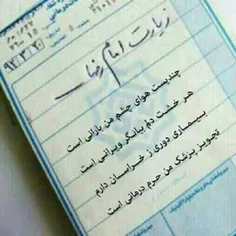 زیارت امام رضا
چندیست هوای چشم من بارانی است
هر خشت دلم بیانگر ویرانی است
بیماری دوری ز خراسان دارم
تجویز پزشک من حرم درمانی است